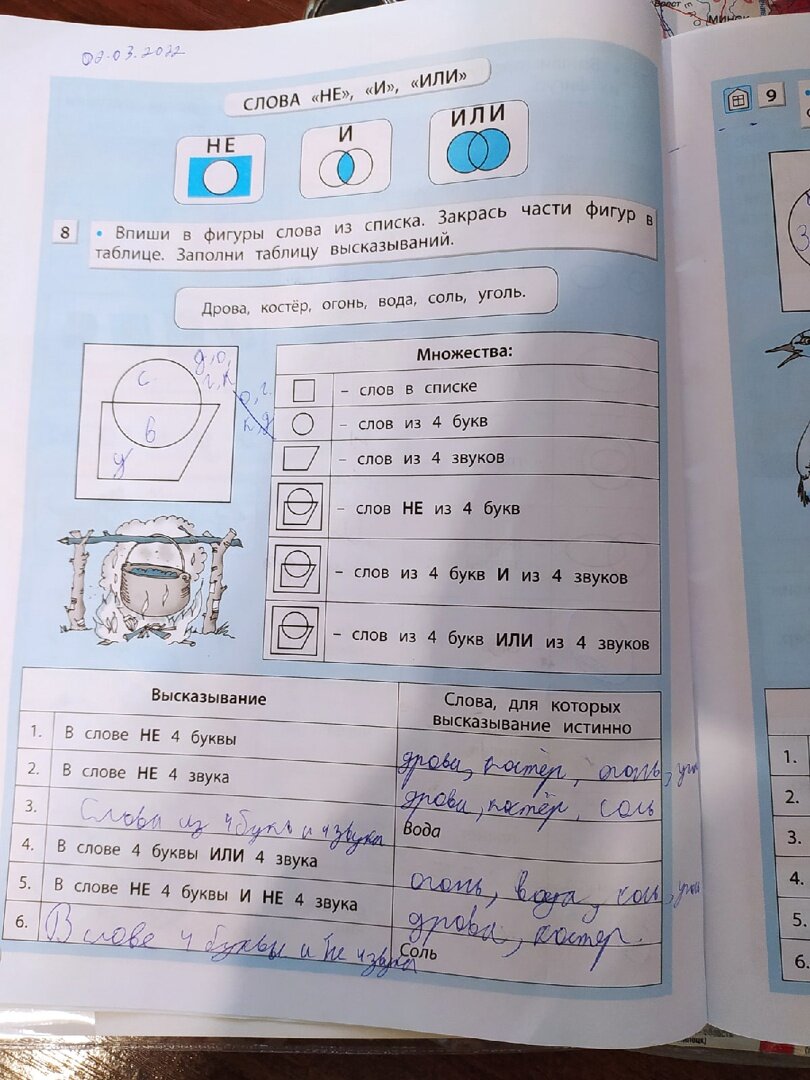 02.03.2022
МИНСК
СЛОВА «НЕ», «И», «ИЛИ»
НЕ
И
ИЛИ
8
• Впиши в фигуры слова из списка. Закрась части фигур в
таблице. Заполни таблицу высказываний.
Дрова, костёр, огонь, вода, соль, уголь.
Множества:
– слов в списке
– слов из 4 букв
– слов из 4 звуков
– слов НЕ из 4 букв
– слов из 4 букв И из 4 звуков
– слов из 4 букв ИЛИ из 4 звуков
с
д, о,
в
у
Высказывание
Слова, для которых
высказывание истинно
1. В слове НЕ 4 буквы
дрова, костёр, огонь,
2. В слове НЕ 4 звука
дрова, костёр, соль
3. Слова из 4 букв и 4 звука
Вода
4. В слове 4 буквы ИЛИ 4 звука
огонь, вода, соль,
5. В слове НЕ 4 буквы И НЕ 4 звука
дрова, костер.
6. В слове 4 буквы и не 4 звука
Соль
9
1.
2.
3.
4.
5.
6.